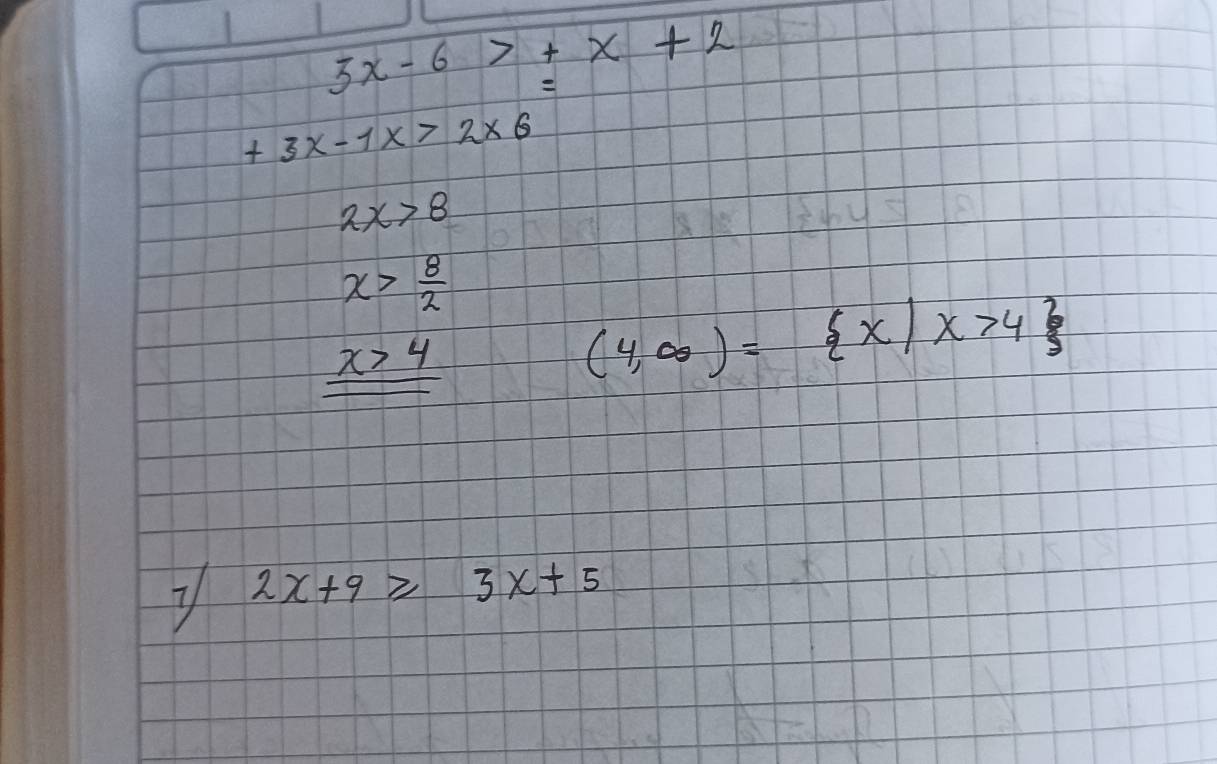 3x - 6 > + x + 2
=
+ 3x - 1x > 2 x 6
2x > 8
x > 8/2
x > 4 (4, ∞) = {x | x > 4}
7) 2x + 9 ≥ 3x + 5